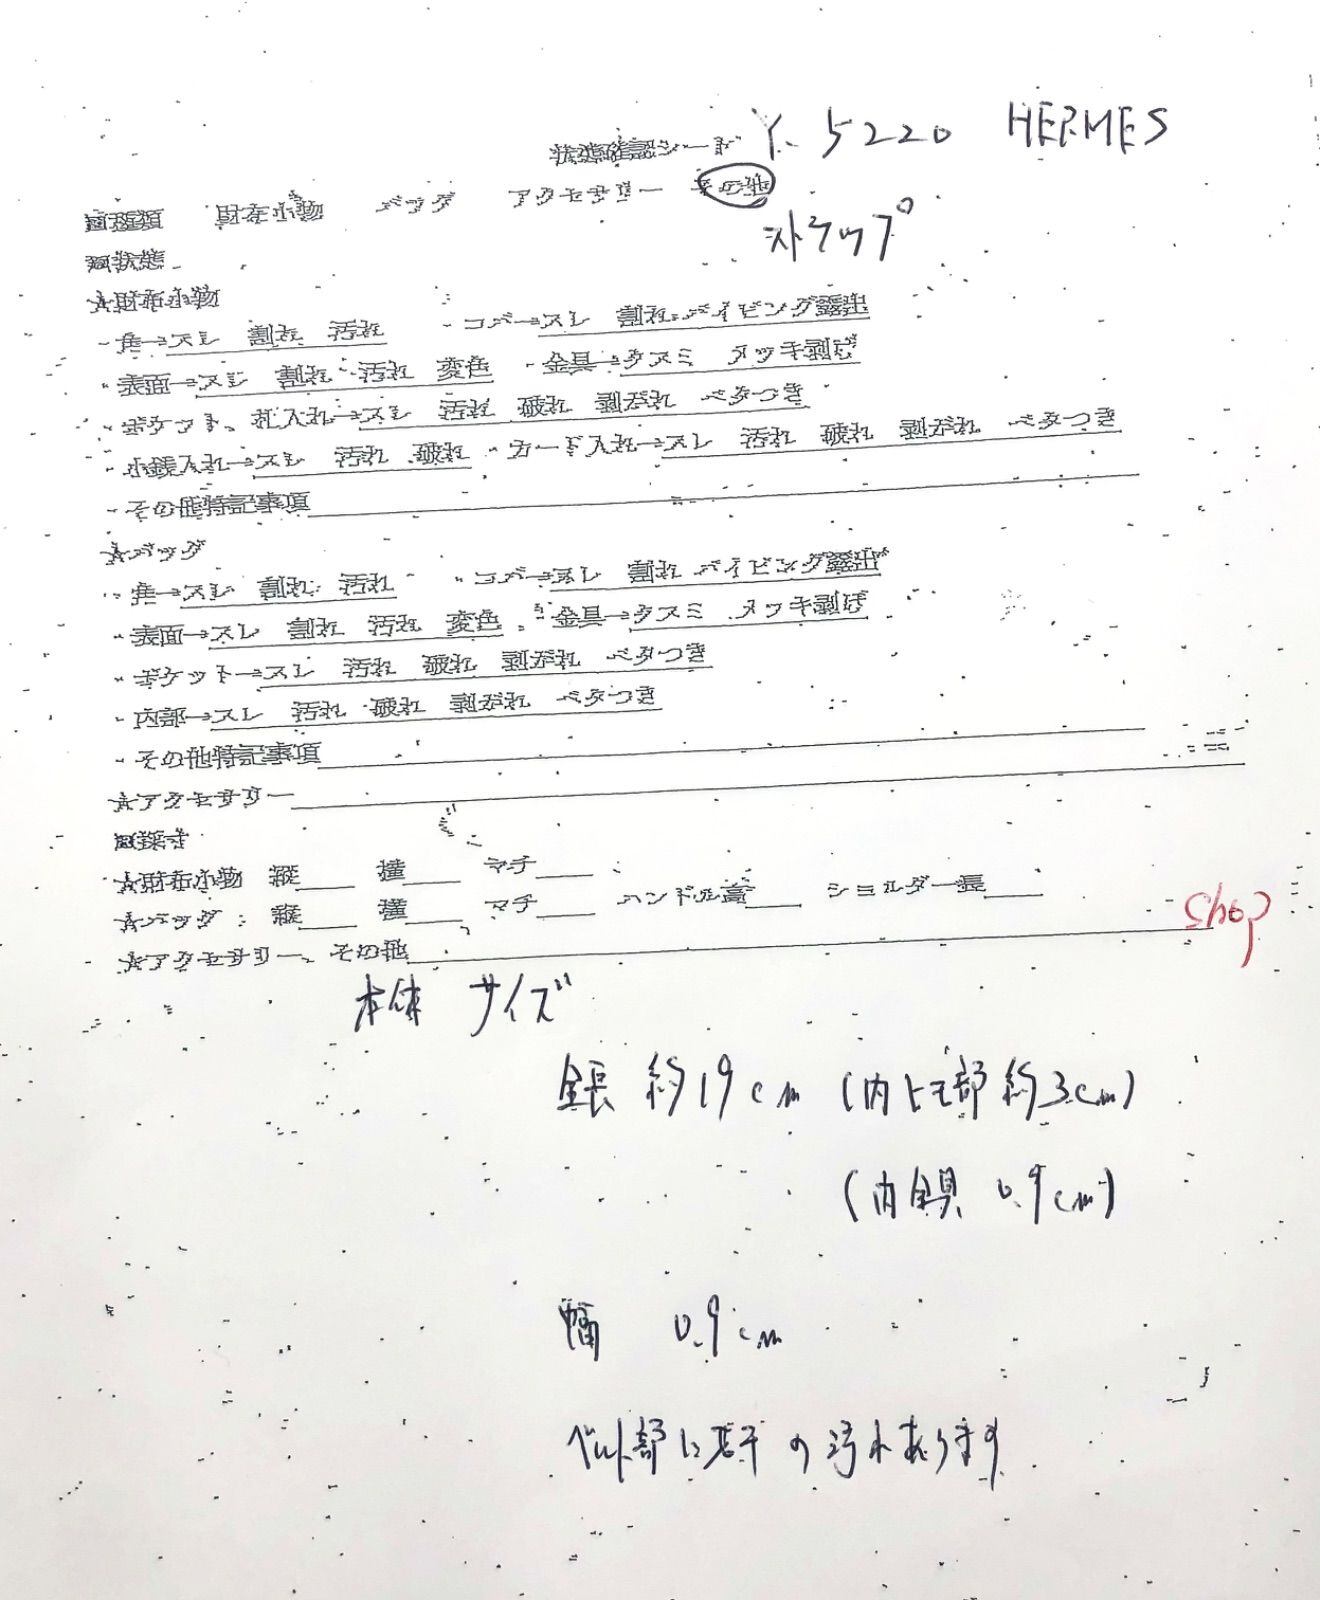 状態確認シート Y. 5220 HERMES
□種類 財布小物 バッグ アクセサリー その他
ストラップ
□状態
☆財布小物
・角→スレ 割れ 汚れ ・コバ→スレ 割れ パイピング露出
・表面→スレ 割れ 汚れ 変色 ・金具→クスミ メッキ剥げ
・ポケット、札入れ→スレ 汚れ 破れ 剥がれ ベタつき
・小銭入れ→スレ 汚れ 破れ ・カード入れ→スレ 汚れ 破れ 剥がれ ベタつき
・その他特記事項
☆バッグ
・角→スレ 割れ 汚れ ・コバ→スレ 割れ パイピング露出
・表面→スレ 割れ 汚れ 変色 ・金具→クスミ メッキ剥げ
・ポケット→スレ 汚れ 破れ 剥がれ ベタつき
・内部→スレ 汚れ 破れ 剥がれ ベタつき
・その他特記事項
☆アクセサリー
□採寸
☆財布小物 縦 横 マチ
☆バッグ : 縦 横 マチ ハンドル高 ショルダー長
☆アクセサリー、その他
shop
本体 サイズ
全長 約19cm (内ヒモ部約3cm)
(内金具 0.9cm)
幅 0.9cm
ベルト部に若干の汚れあります